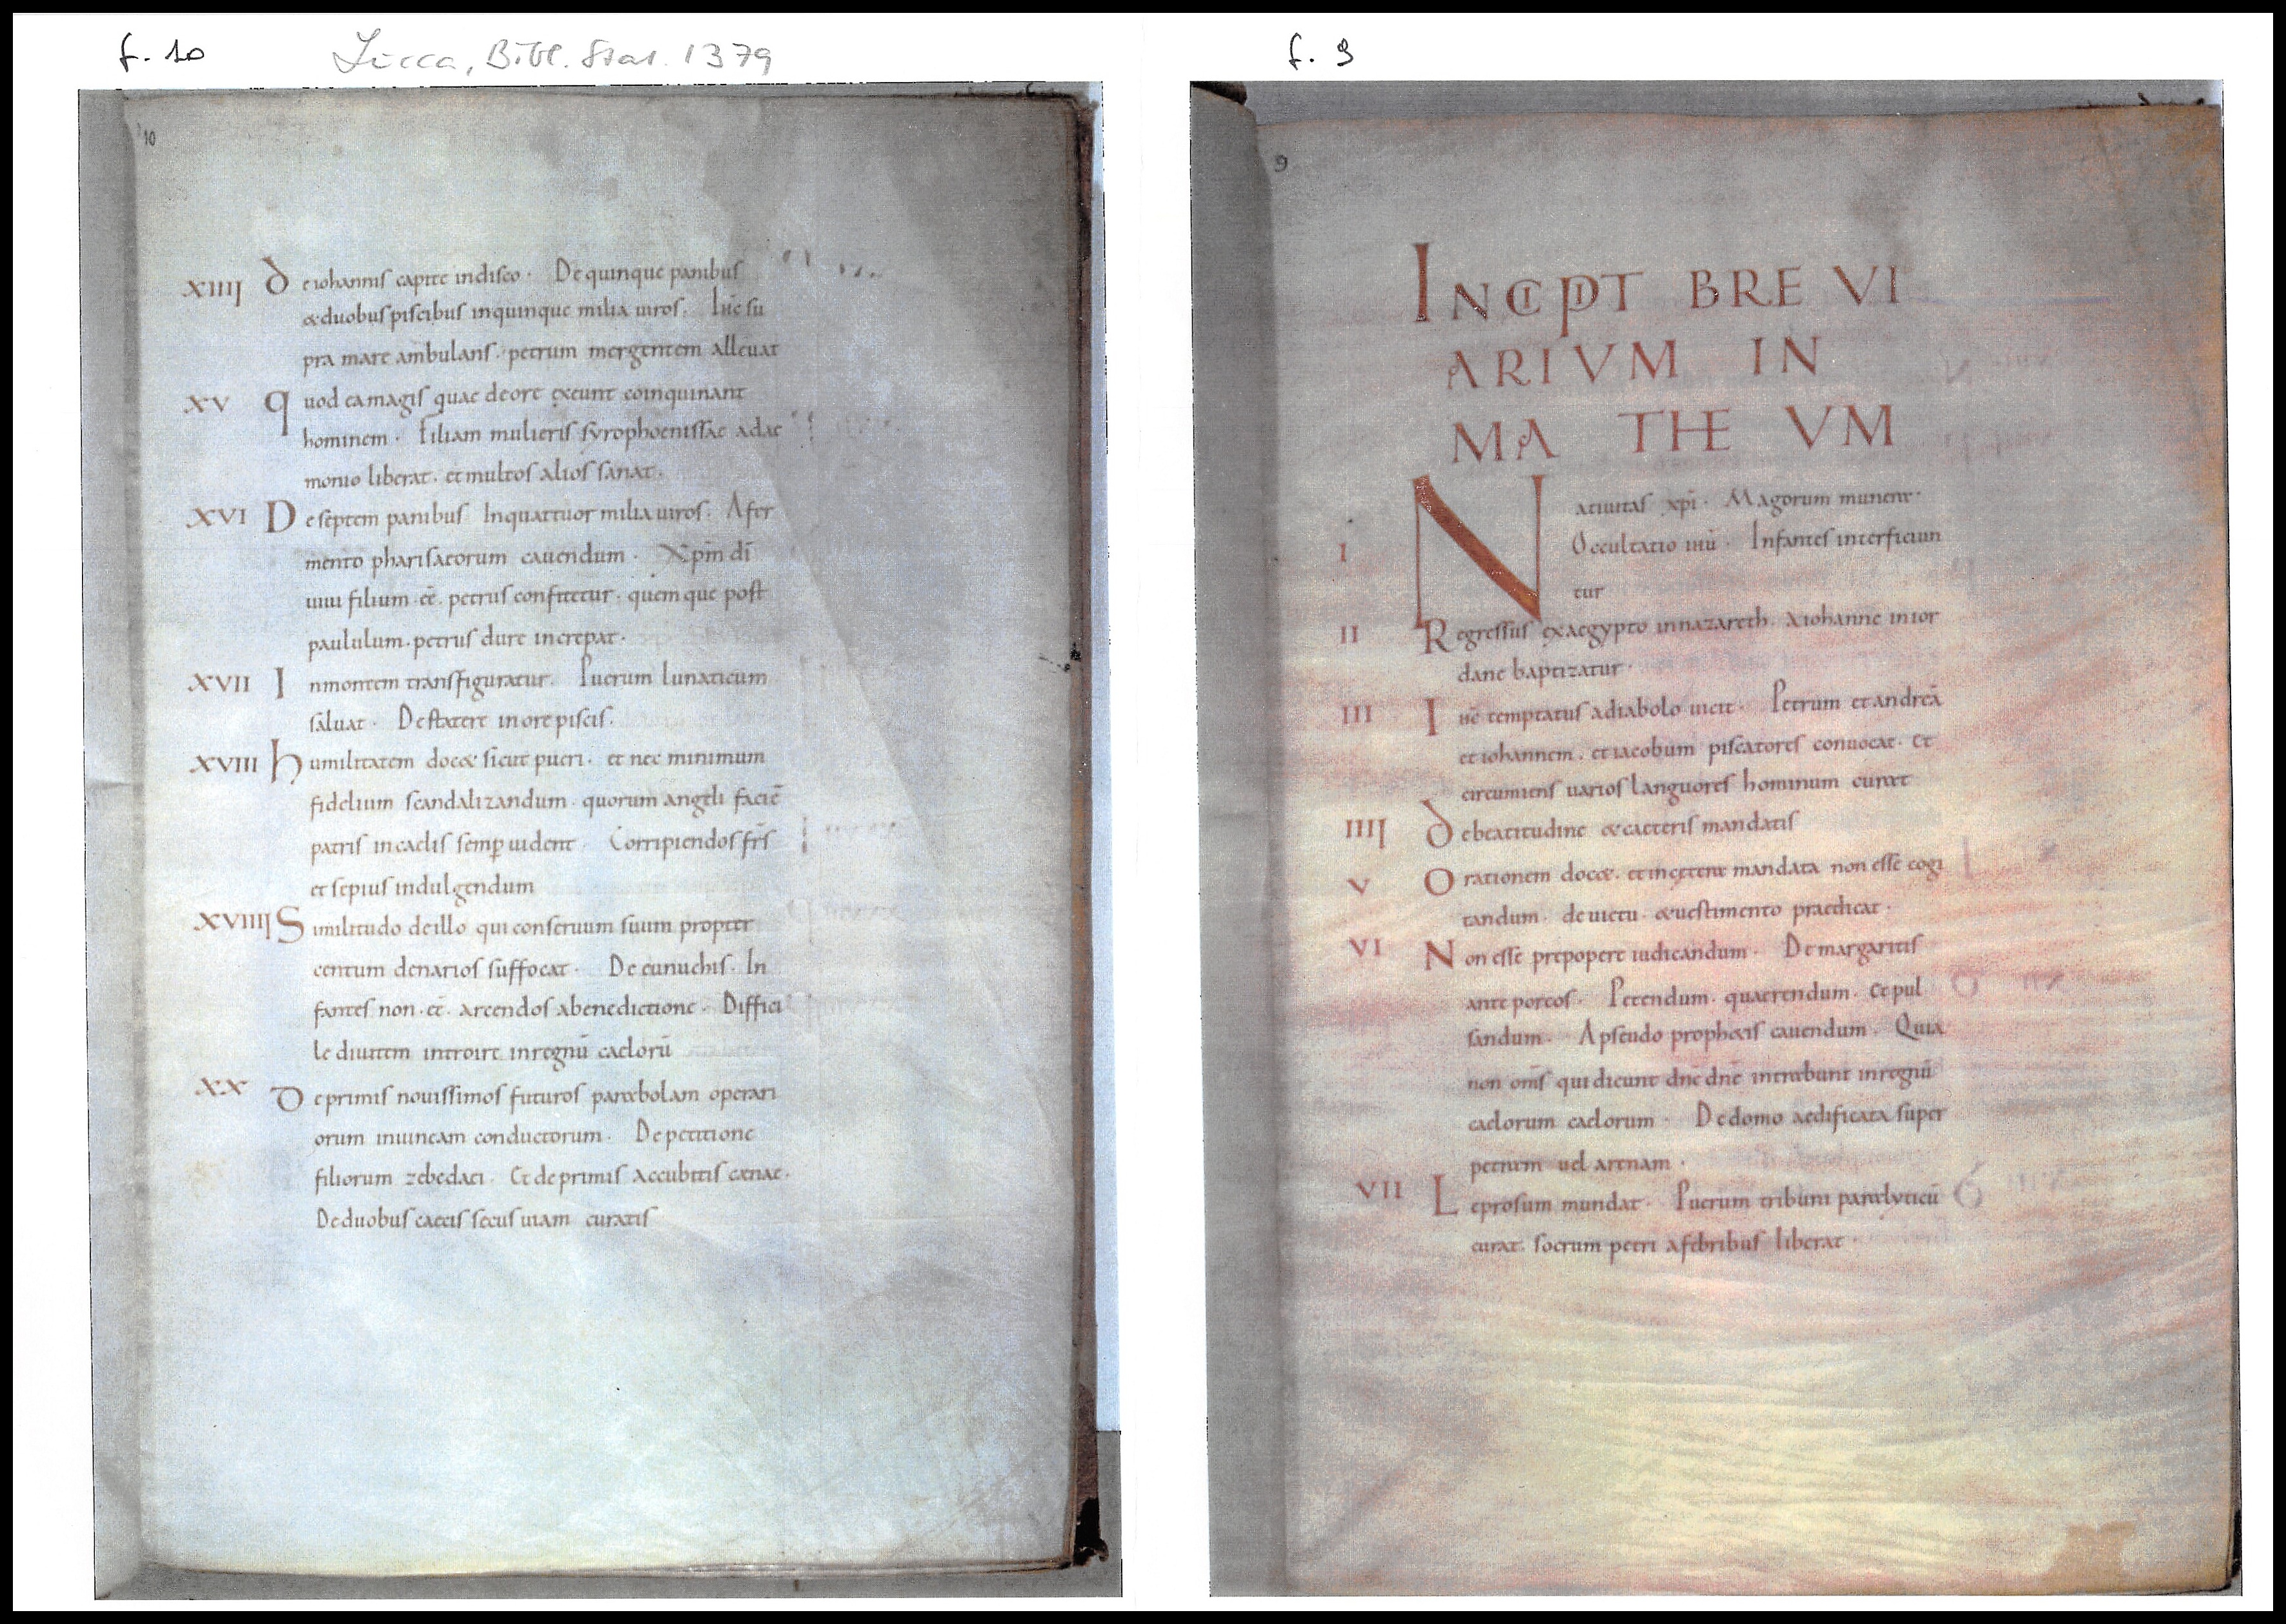 f. 10 Lucca, Bibl. Stat. 1379
10
XIIII De iohannis capite in disco · De quinque panibus
& duobus piscibus in quinque milia uiros . Ihc su
pra mare ambulans · petrum mergentem alleuat
XV Quod ea magis quae de ore exeunt coinquinant
hominem · Filiam mulieris syrophoenissae a dae
monio liberat · et multos alios sanat ·
XVI De septem panibus In quattuor milia uiros . A fer
mento pharisaeorum cauendum · Xpm dī
uiui filium · eē · petrus confitetur · quem que post
paululum · petrus dure increpat ·
XVII In montem transfiguratur . Puerum lunaticum
saluat · De statere in ore piscis .
XVIII humilitatem doc& sicut pueri · et nec minimum
fidelium scandalizandum · quorum angeli faciē
patris in caelis semp uident · Corripiendos frs
et sepius indulgendum
XVIIII Similitudo de illo qui conseruum suum propter
centum denarios suffocat · De eunuchis . In
fantes non · eē · arcendos a benedictione · Diffici
le diuitem introire in regnū caelorū
XX De primis nouissimos futuros parabolam operari
orum in uineam conductorum · De petitione
filiorum zebedaei . Et de primis accubitis caenae ·
De duobus caecis secus uiam curatis
f. 9
9
INCIPIT BREVI
ARIVM IN
MATHEVM
I Natiuitas xpi · Magorum munera ·
Occultatio iiiū · Infantes interficiun
tur
II Regressus ex aegypto in nazareth · a iohanne in ior
dane baptizatur ·
III Ihc temptatus a diabolo uicit · Petrum et andreā
et iohannem . et iacobum piscatores conuocat · et
circumiens uarios languores hominum curat
IIII De beatitudine & caeteris mandatis
V Orationem doc& · et in caetera mandata non esse cogi
tandum · de uictu · & uestimento praedicat ·
VI Non esse prepopere iudicandum · De margaritis
ante porcos · Petendum · quaerendum · et pul
sandum · A pseudo proph&is cauendum . Quia
non oms qui dicunt dne dne intrabunt in regnū
caelorum caelorum · De domo aedificata super
petram uel arenam ·
VII Leprosum mundat · Puerum tribuni paralyticū
curat · socrum petri a febribus liberat ·